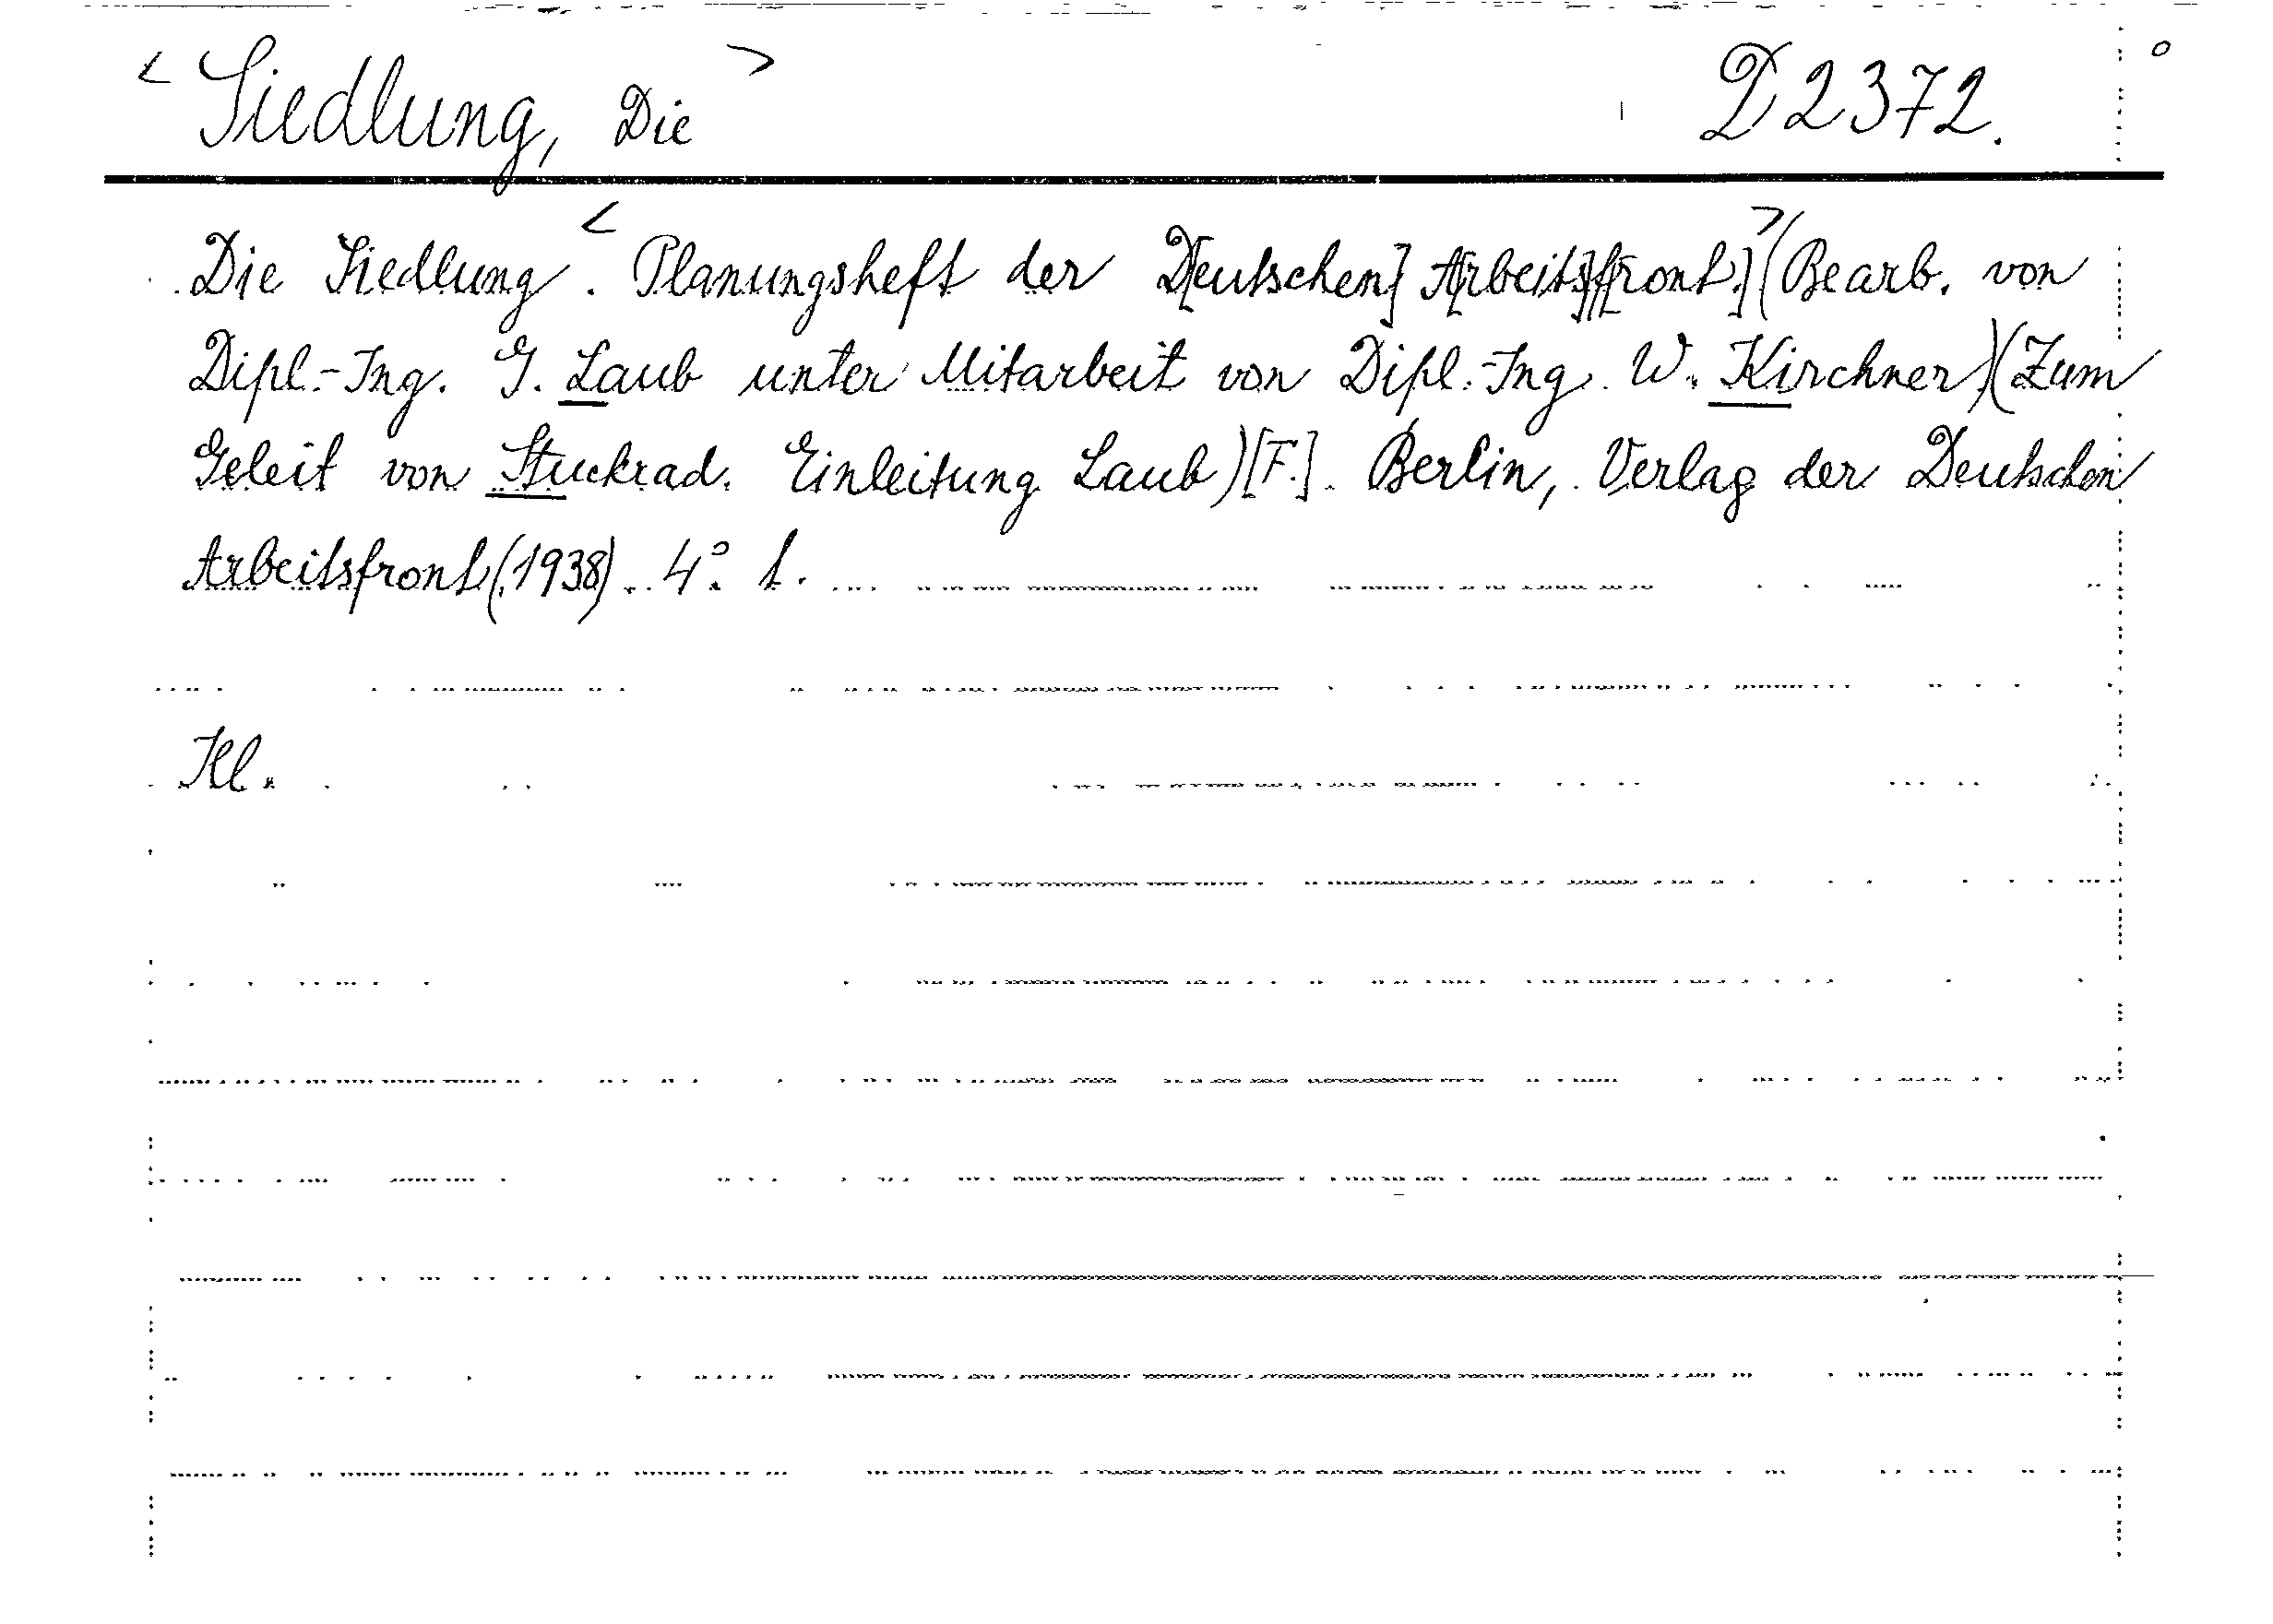 < Siedlung, Die > D 2372.
Die Siedlung. < Planungsheft der D[eutschen] A[rbeits][front.] > (Bearb. von
Dipl.-Ing. G. Laub unter Mitarbeit von Dipl.-Ing. W. Kirchner)(Zum
Geleit von Stuckrad. Einleitung Laub)[F.]. Berlin, Verlag der Deutschen
Arbeitsfront (1938). 4°.
Kl.